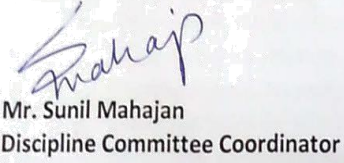 Smahajan
Mr. Sunil Mahajan
Discipline Committee Coordinator